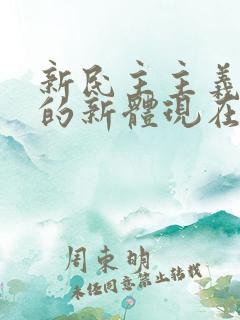 新民主主義
的新體現在
周東明
未任同意禁止转载